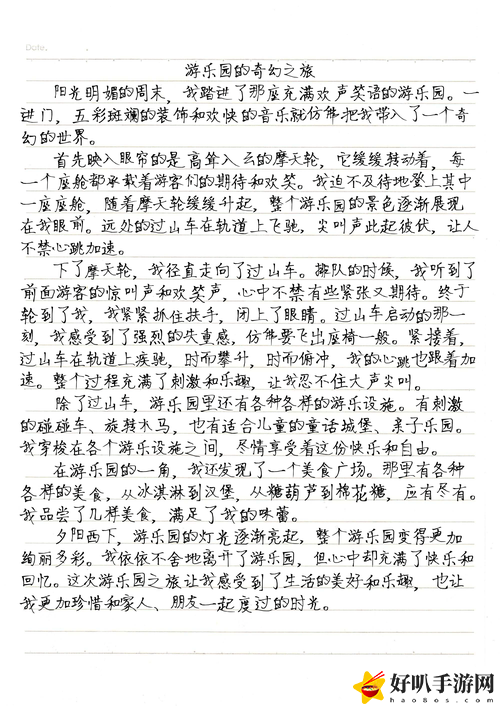 Date.
游乐园的奇幻之旅
阳光明媚的周末，我踏进了那座充满欢声笑语的游乐园。一
进门，五彩斑斓的装饰和欢快的音乐就仿佛把我带入了一个奇
幻的世界。
首先映入眼帘的是高耸入云的摩天轮，它缓缓转动着，每
一个座舱都承载着游客们的期待和欢笑。我迫不及待地登上其中
一座座舱，随着摩天轮缓缓升起，整个游乐园的景色逐渐展现
在我眼前。远处的过山车在轨道上飞驰，尖叫声此起彼伏，让人
不禁心跳加速。
下了摩天轮，我径直走向了过山车。排队的时候，我听到了
前面游客的惊叫声和欢笑声，心中不禁有些紧张又期待。终于
轮到了我，我紧紧抓住扶手，闭上了眼睛。过山车启动的那一
刻，我感受到了强烈的失重感，仿佛要飞出座椅一般。紧接着，
过山车在轨道上疾驰，时而攀升，时而俯冲，我的心跳也跟着加
速。整个过程充满了刺激和乐趣，让我忍不住大声尖叫。
除了过山车，游乐园里还有各种各样的游乐设施。有刺激
的碰碰车、旋转木马，也有适合儿童的童话城堡、亲子乐园。
我穿梭在各个游乐设施之间，尽情享受着这份快乐和自由。
在游乐园的一角，我还发现了一个美食广场。那里有各种
各样的美食，从冰淇淋到汉堡，从糖葫芦到棉花糖，应有尽有。
我品尝了几样美食，满足了我的味蕾。
夕阳西下，游乐园的灯光逐渐亮起，整个游乐园变得更加
绚丽多彩。我依依不舍地离开了游乐园，但心中却充满了快乐和
回忆。这次游乐园之旅让我感受到了生活的美好和乐趣，也让
我更加珍惜和家人、朋友一起度过的时光。
好叭手游网
hao8os.com